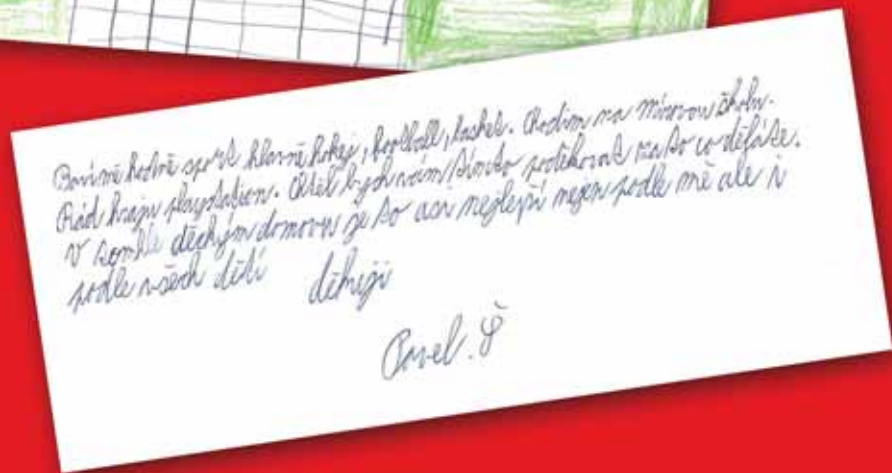 Baví mě hodně sport hlavně hokej, football, basket. Chodím na mírovou školu.
Rád hraju playstation. Chtěl bych vám tímto poděkovat za to co děláte.
V tomhle děckým domovu je to asi nejlepší nejen podle mě ale i
podle všech dětí děkuji
Pavel. Š